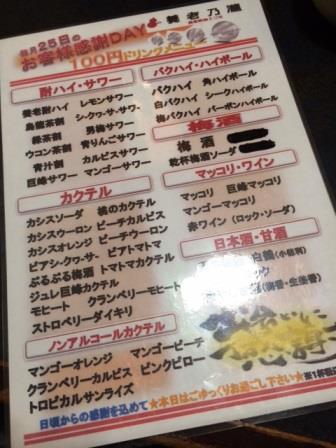 毎月25日の
お客様感謝DAY 養老乃瀧
100円ドリンクメニュー
酎ハイ・サワー
養老酎ハイ レモンサワー
烏龍茶割 シークワーサーサワー
緑茶割 男梅サワー
ウコン茶割 青りんごサワー
青汁割 カルピスサワー
巨峰サワー マンゴーサワー
カクテル
カシスソーダ 桃のカクテル
カシスウーロン ピーチカルピス
カシスオレンジ ピーチウーロン
ビアシークヮーサー ビアトマト
ぷるぷる梅酒 トマトカクテル
ジュレ巨峰カクテル
モヒート クランベリーモヒート
ストロベリーダイキリ
ノンアルコールカクテル
マンゴーオレンジ マンゴーピーチ
クランベリーカルピス ピンクピロー
トロピカルサンライズ
バクハイ・ハイボール
バクハイ 角ハイボール
白バクハイ シークハイボール
梅バクハイ バーボンハイボール
梅酒
梅酒
乾杯梅酒ソーダ
マッコリ・ワイン
マッコリ 巨峰マッコリ
マンゴーマッコリ
赤ワイン(ロック・ソーダ)
日本酒・甘酒
白鶴(小徳利)
ロック
日頃からの感謝を込めて★本日はごゆっくりお過ごし下さい★